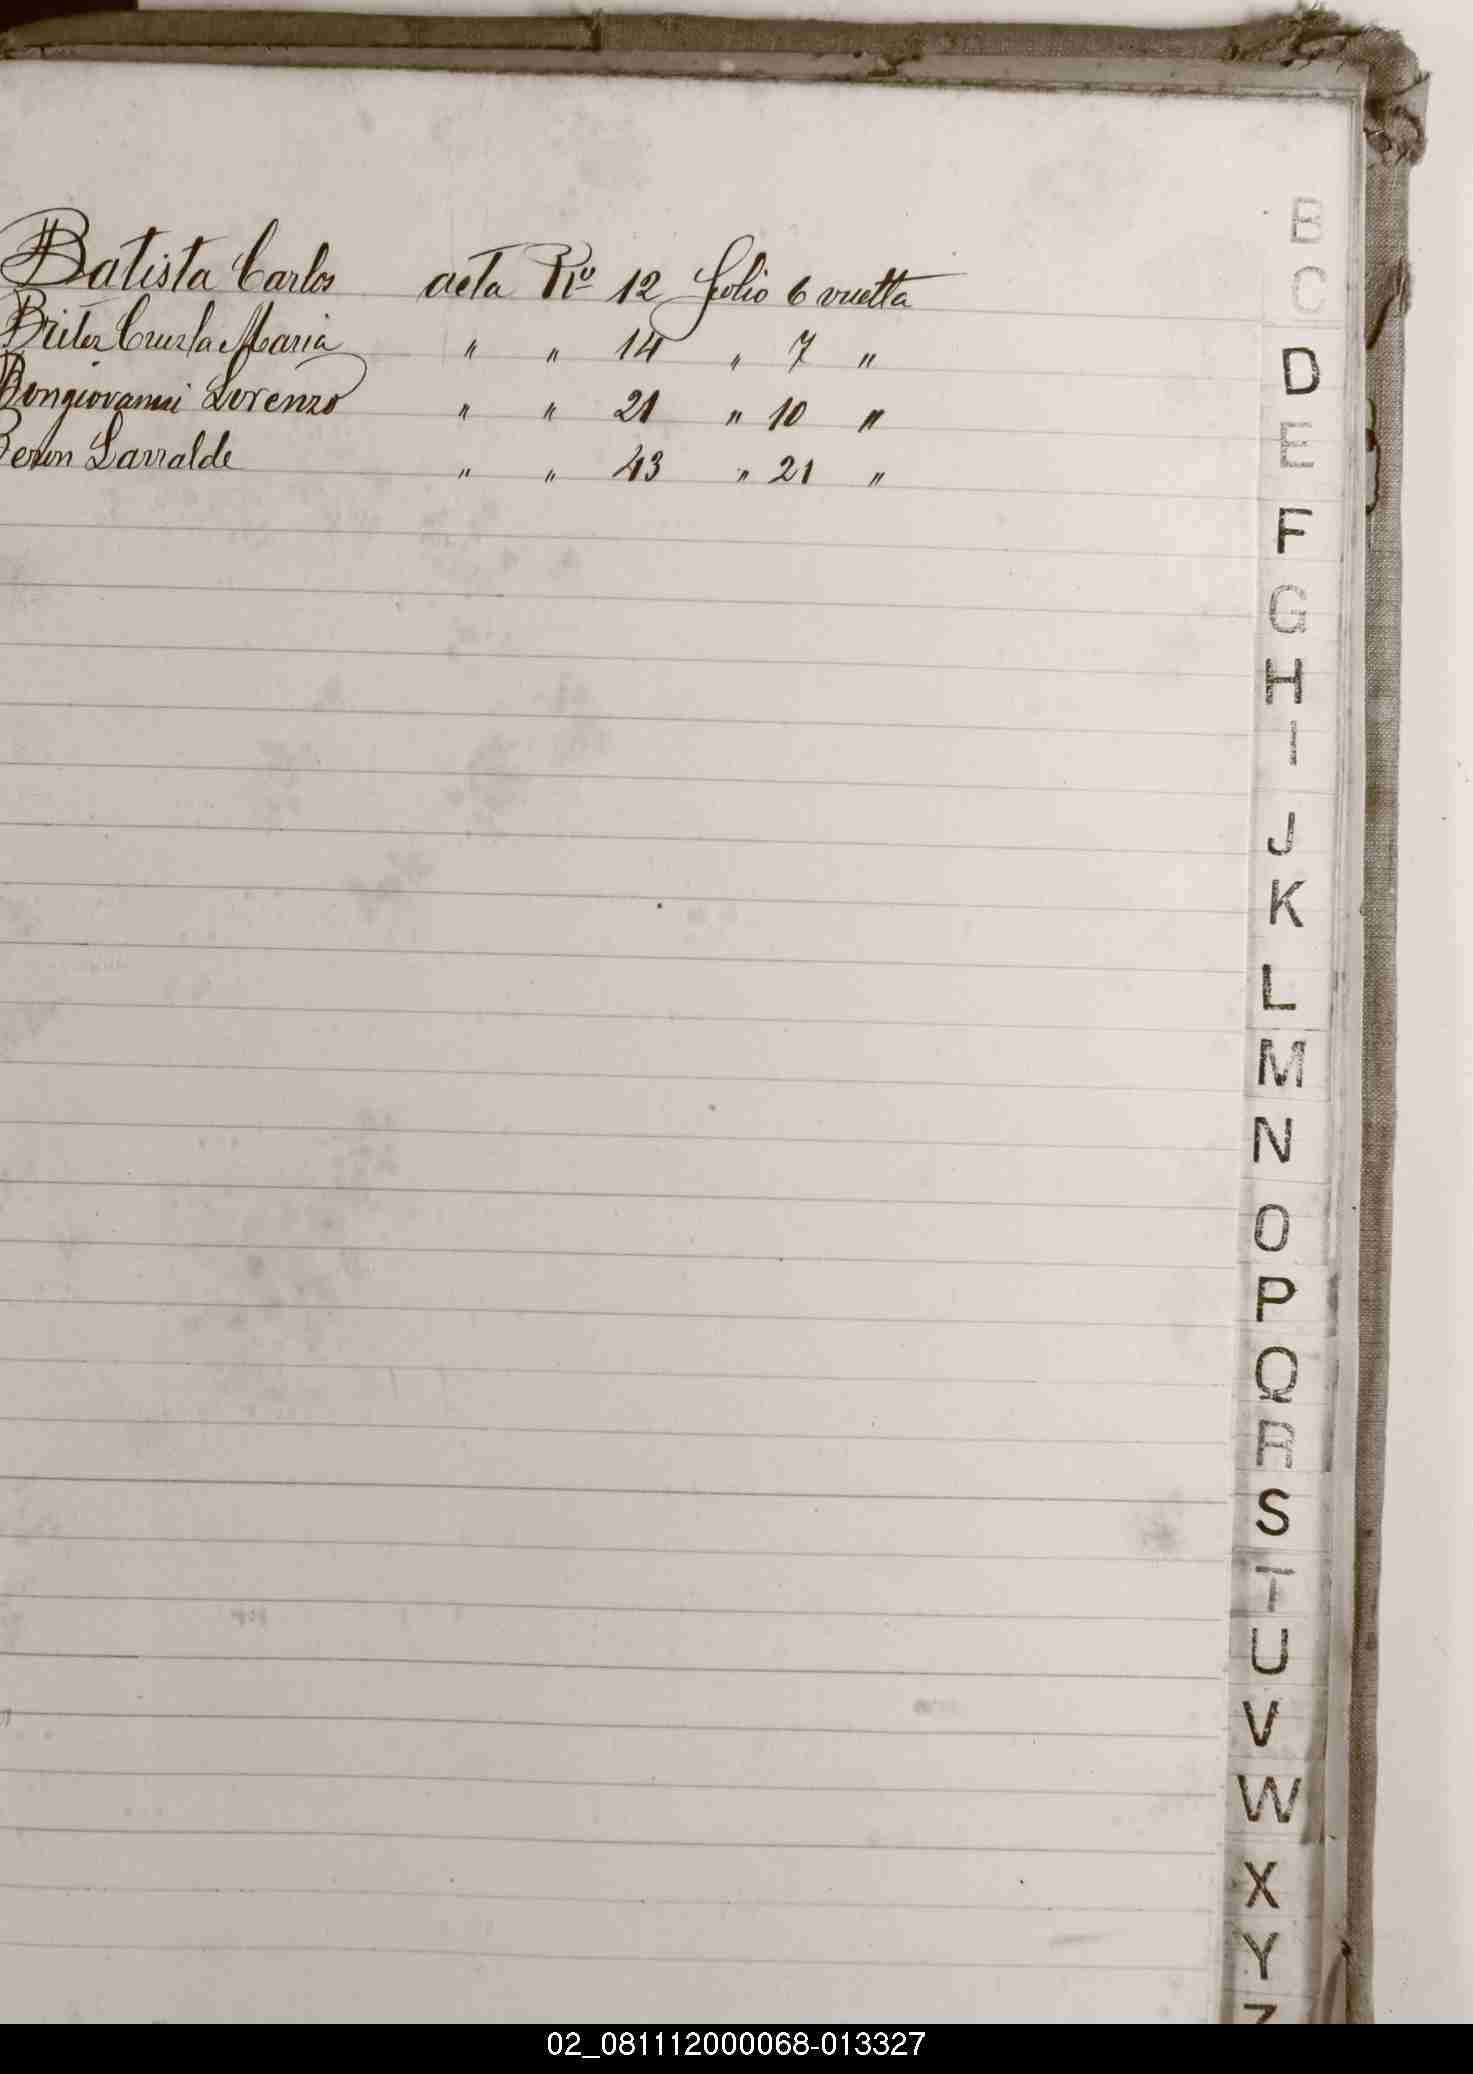 Batista Carlos acta No 12 folio 6 vuelta
Maria " " 14 " 7 "
Bongiovanni Lorenzo " " 21 " 10 "
Larralde " " 43 " 21 "
B
C
D
E
F
G
H
I
J
K
L
M
N
O
P
Q
R
S
T
U
V
W
X
Y
Z
02_081112000068-013327